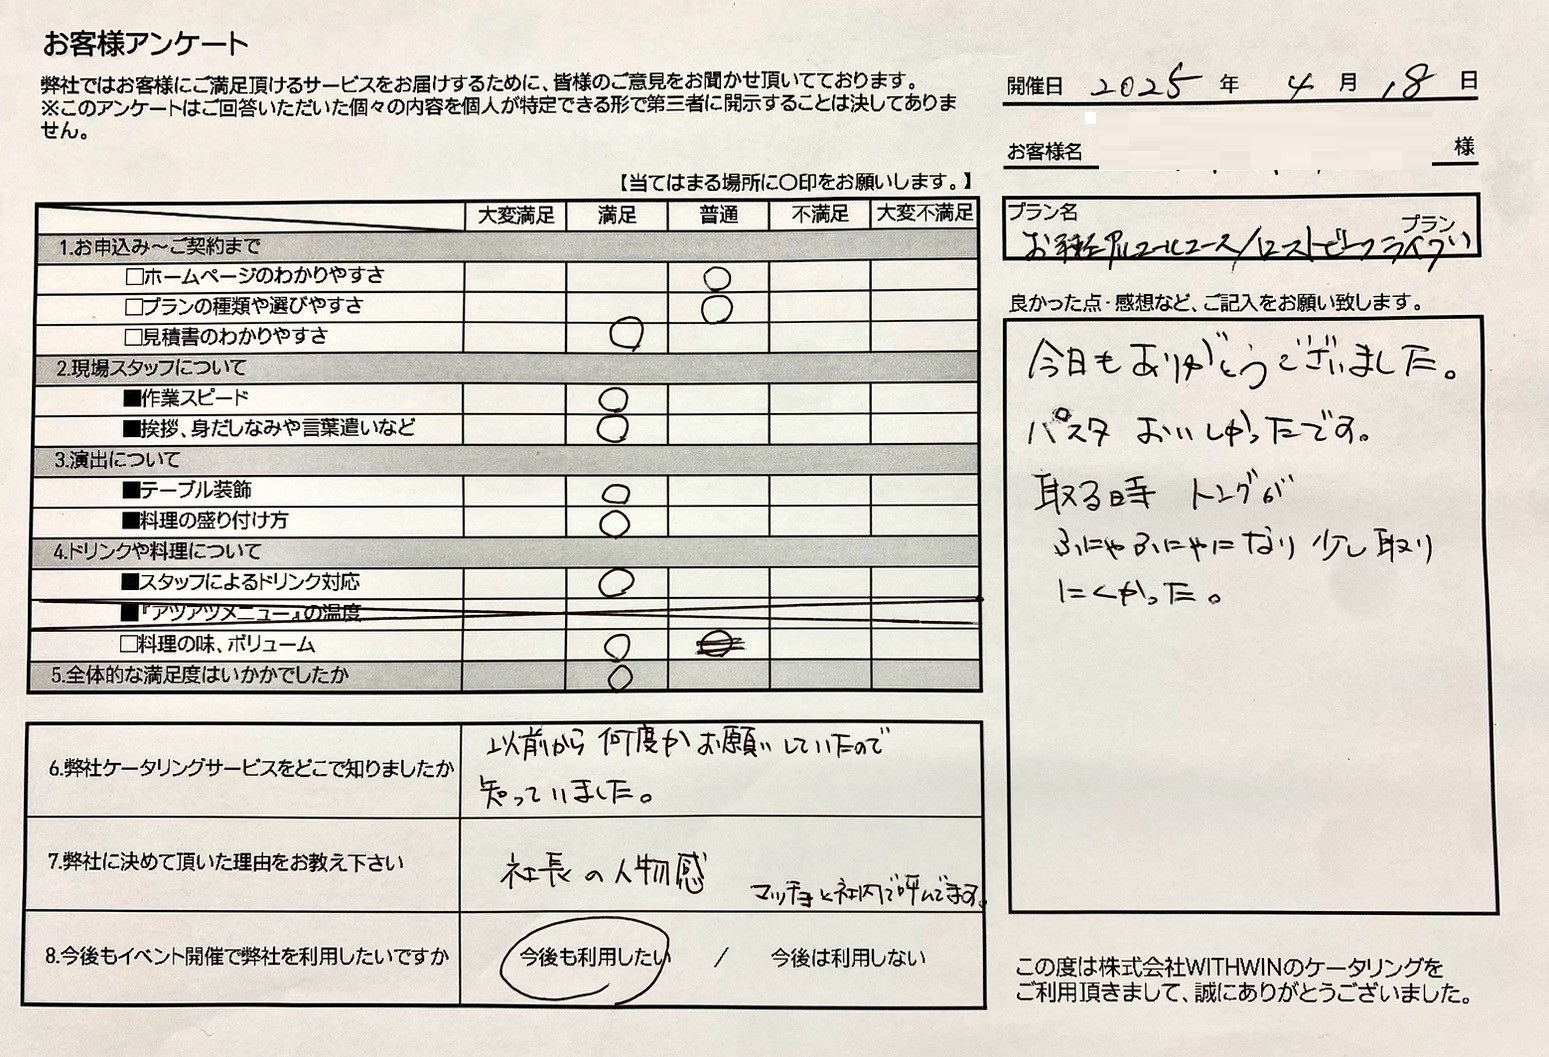 お客様アンケート
弊社ではお客様にご満足頂けるサービスをお届けするために、皆様のご意見をお聞かせ頂いてております。
※このアンケートはご回答いただいた個々の内容を個人が特定できる形で第三者に開示することは決してありま
せん。
【当てはまる場所に〇印をお願いします。】
大変満足 満足 普通 不満足 大変不満足
1.お申込み～ご契約まで
□ホームページのわかりやすさ ○
□プランの種類や選びやすさ ○
□見積書のわかりやすさ ○
2.現場スタッフについて
■作業スピード ○
■挨拶、身だしなみや言葉遣いなど ○
3.演出について
■テーブル装飾 ○
■料理の盛り付け方 ○
4.ドリンクや料理について
■スタッフによるドリンク対応 ○
■『アツアツメニュー』の温度
□料理の味、ボリューム ○ ○
5.全体的な満足度はいかかでしたか ○
6.弊社ケータリングサービスをどこで知りましたか
以前から何度かお願いしていたので
知っていました。
7.弊社に決めて頂いた理由をお教え下さい
社長の人物感
マッチョと社内で呼んでます。
8.今後もイベント開催で弊社を利用したいですか
今後も利用したい / 今後は利用しない
開催日 2025 年 4 月 18 日
お客様名 様
プラン名
プラン
お手軽アルコールコース/ローストビーフライブい
良かった点・感想など、ご記入をお願い致します。
今日もありがとうございました。
パスタ おいしかったです。
取る時 トングが
ふにゃふにゃになり 少し取り
にくかった。
この度は株式会社WITHWINのケータリングを
ご利用頂きまして、誠にありがとうございました。